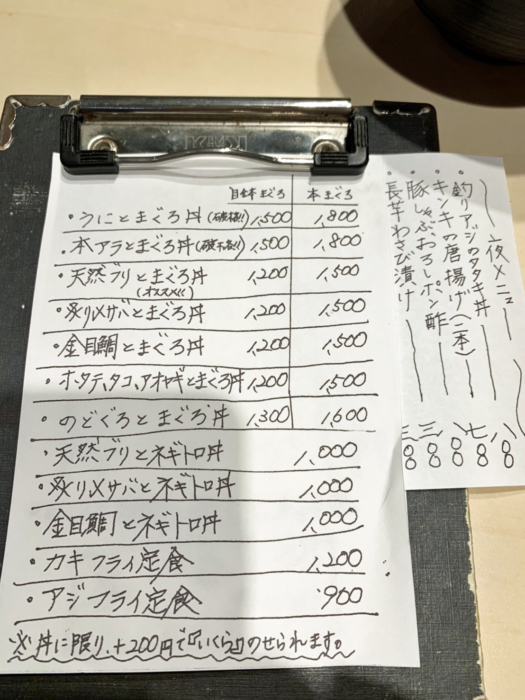 目鉢まぐろ 本まぐろ
・うにとまぐろ丼 1,500 1,800
・本アラとまぐろ丼 1,500 1,800
・天然ブリとまぐろ丼 1,200 1,500
(オススメ!!)
・炙り〆サバとまぐろ丼 1,200 1,500
・金目鯛とまぐろ丼 1,200 1,500
・ホタテ、タコ、アオヤギとまぐろ丼 1,200 1,500
・のどぐろとまぐろ丼 1,300 1,600
・天然ブリとネギトロ丼 1,000
・炙り〆サバとネギトロ丼 1,000
・金目鯛とネギトロ丼 1,000
・カキフライ定食 1,200
・アジフライ定食 960
※丼に限り、+200円で『いくら』のせられます。
夜メニュー
・釣りアジのタタキ丼 八〇〇
・キンキの唐揚げ(二本) 七〇〇
・豚しゃぶおろしポン酢
・長芋わさび漬け 三〇〇